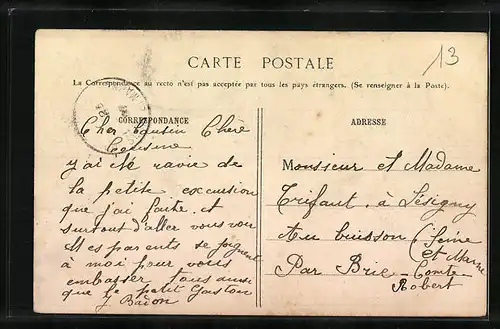 13
CARTE POSTALE
La Correspondance au recto n'est pas acceptée par tous les pays étrangers. (Se renseigner à la Poste).
CORRESPONDANCE
Cher Cousin Chère
Cousine
j'ai été ravie de
la petite excursion
que j'ai faite. et
surtout d'aller vous voir
Mes parents se joignent
à moi pour vous
embrasser tous ainsi
que le petit Gaston
Y Badon
ADRESSE
Monsieur et Madame
Trifaut. à Lésigny
Au buisson (Seine
et Marne
Par Brie-Comte-
Robert